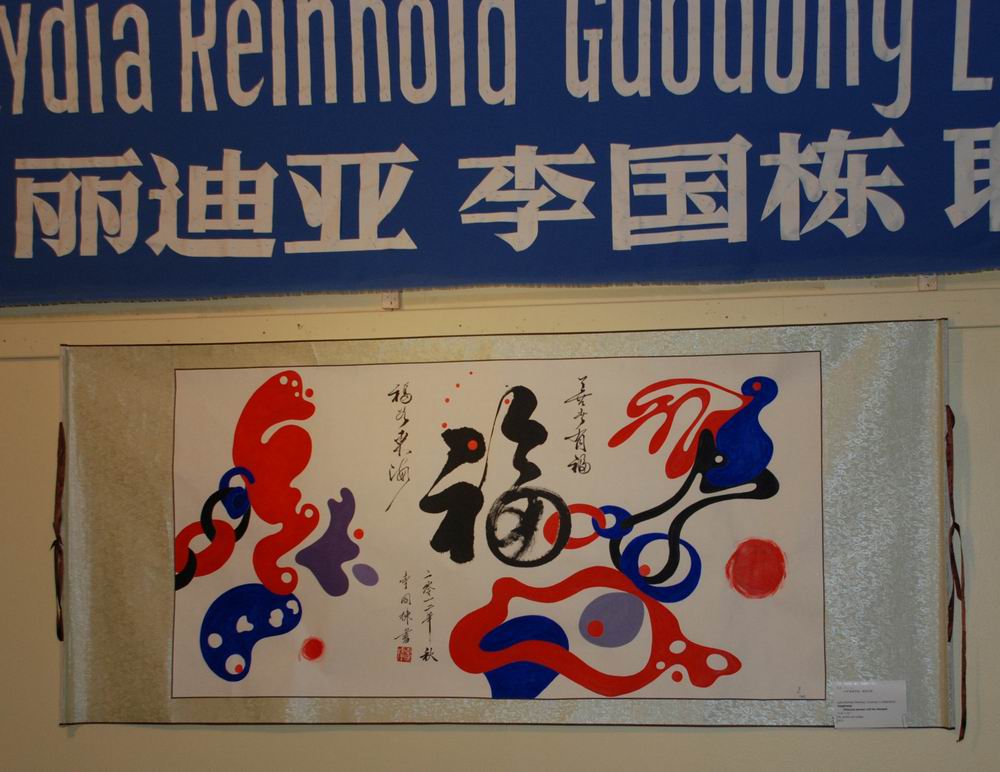 ydia Reinhold Guodong L
丽迪亚 李国栋 联
福如东海
福
善者有福
二零一二年秋
李国栋书